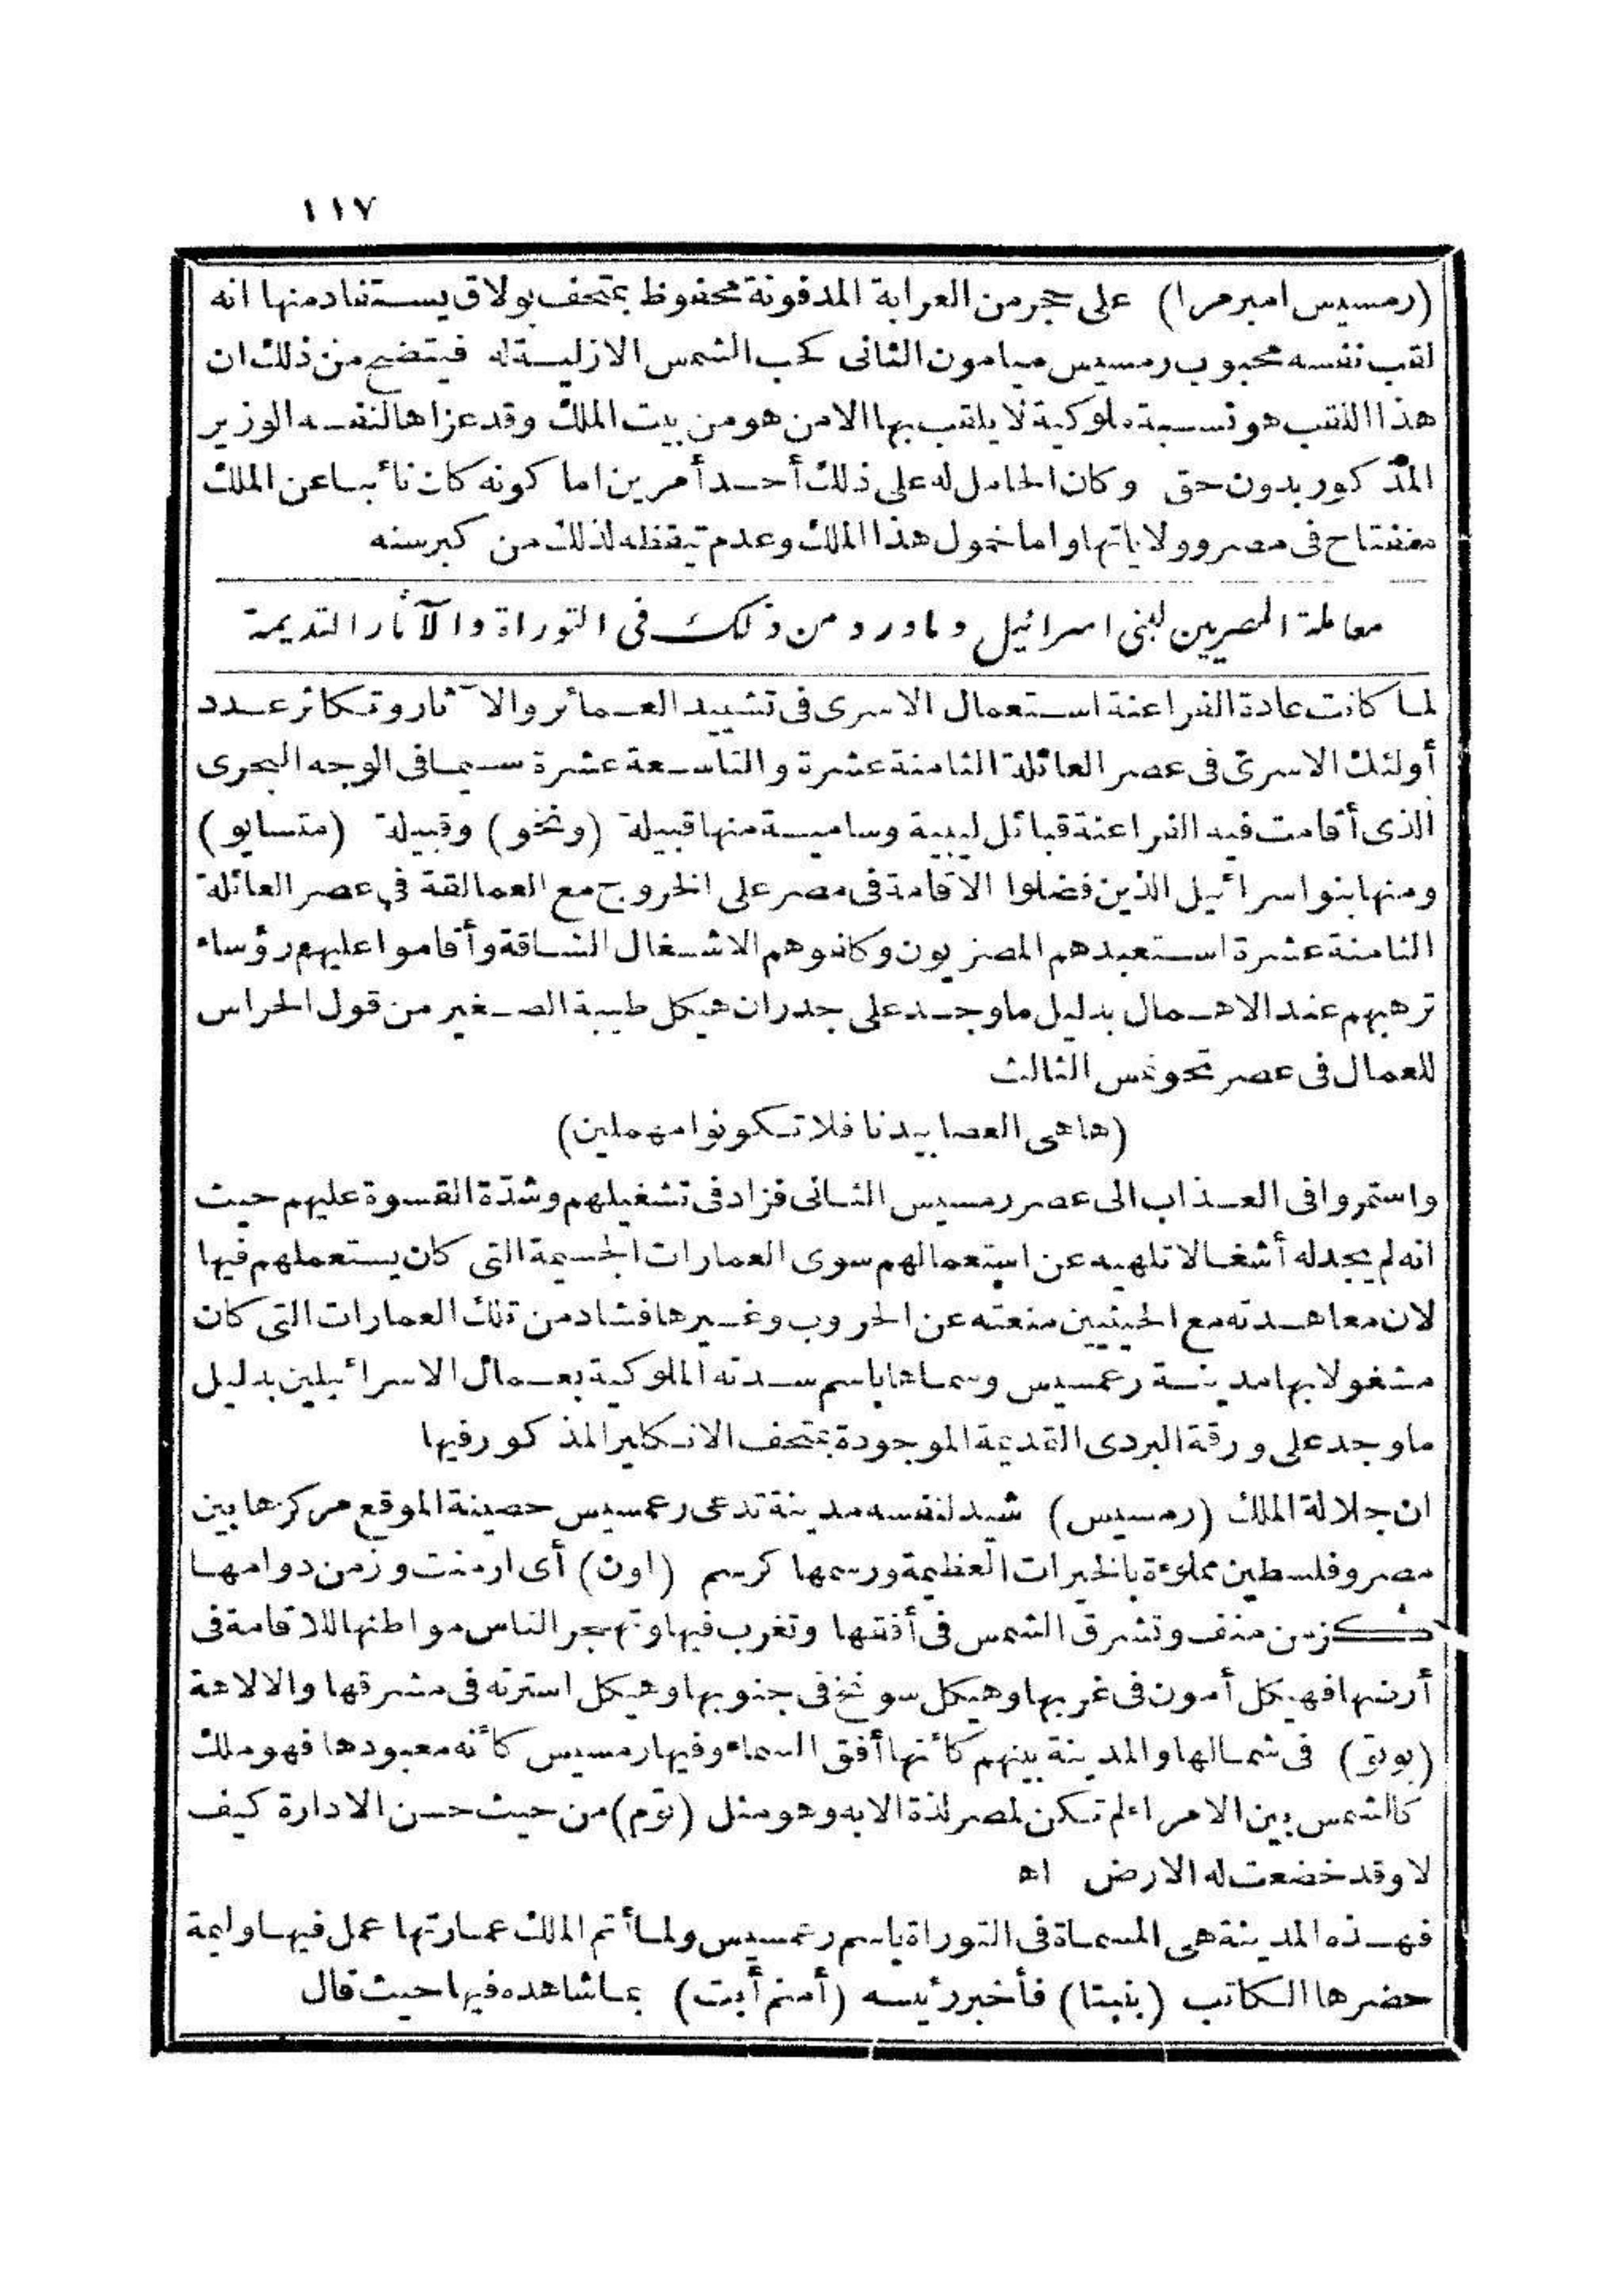 ١١٧
(رمسيس امبرمرا) على حجر من العرابة المدفونة محفوظ بمتحف بولاق يستفاد منها انه
لقب نفسه محبوب رمسيس ميامون الثانى كحب الشمس الازلية له فيتضح من ذلك ان
هذا اللقب هو نسبة ملوكية لا يلقب بها الا من هو من بيت الملك وقد عزاها لنفسه الوزير
المذكور بدون حق وكان الحامل له على ذلك أحد أمرين اما كونه كان نائبا عن الملك
منفتاح فى مصر وولاياتها واما خمول هذا الملك وعدم تيقظه لذلك من كبرسنه
معاملة المصريين لبنى اسرائيل وما ورد من ذلك فى التوراة والآثار القديمة
لما كانت عادة الفراعنة استعمال الاسرى فى تشييد العمائر والآثار وتكاثر عدد
أولئك الاسرى فى عصر العائلة الثامنة عشرة والتاسعة عشرة سيما فى الوجه البحرى
الذى أقامت فيه الفراعنة قبائل ليبية وسامية منها قبيلة (ونخو) وقبيلة (متسايو)
ومنها بنو اسرائيل الذين فضلوا الاقامة فى مصر على الخروج مع العمالقة فى عصر العائلة
الثامنة عشرة استعبدهم المصريون وكلفوهم الاشغال الشاقة وأقاموا عليهم رؤساء
ترهبهم عند الاهمال بدليل ما وجد على جدران هيكل طيبة الصغير من قول الحراس
للعمال فى عصر تحوتمس الثالث
(ها هى العصا بيدنا فلا تكونوا مهملين)
واستمروا فى العذاب الى عصر رمسيس الثانى فزاد فى تشغيلهم وشدّة القسوة عليهم حيث
انه لم يجد له أشغالا تلهيه عن استعمالهم سوى العمارات الجسيمة التى كان يستعملهم فيها
لان معاهدته مع الحيثيين منعته عن الحروب وغيرها فشاد من تلك العمارات التى كان
مشغولا بها مدينة رعمسيس وسماها باسم سدته الملوكية بعمال الاسرائيلين بدليل
ما وجد على ورقة البردى القديمة الموجودة بمتحف الانكليز المذكور فيها
ان جلالة الملك (رمسيس) شيد لنفسه مدينة تدعى رعمسيس حصينة الموقع مركزها بين
مصر وفلسطين مملوءة بالخيرات العظيمة ورسمها كرسم (اون) أى ارمنت وزمن دوامها
كزمن منف وتشرق الشمس فى أفقها وتغرب فيها وتهجر الناس مواطنها للاقامة فى
أرضها فهيكل أمون فى غربها وهيكل سوتخ فى جنوبها وهيكل استرته فى مشرقها والالاهة
(بوتو) فى شمالها والمدينة بينهم كأنها أفق السماء وفيها رمسيس كأنه معبودها فهو ملك
كالشمس بين الامراء لم تكن لمصر لذة الا به وهو مثل (توم) من حيث حسن الادارة كيف
لا وقد خضعت له الارض اه
فهذه المدينة هى المسماة فى التوراة باسم رعمسيس ولما أتم الملك عمارتها عمل فيها وليمة
حضرها الكاتب (بنبتا) فأخبر رئيسه (أمنم أبت) بما شاهده فيها حيث قال